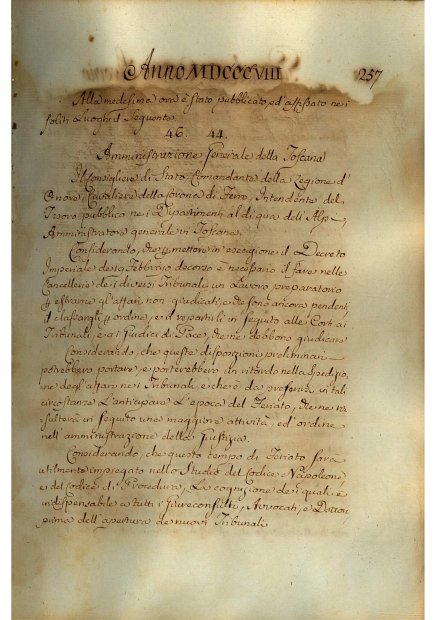 Anno MDCCCVIII
257
Alla medesima ora è stato pubblicato, ed' affissato nei
soliti Luoghi il seguente
46. 44.
Amministrazione Generale della Toscana
Il Consigliere di Stato Comandante della Legione d'
Onore, Cavaliere della Corona di Ferro, Intendente del
Tesoro pubblico nei Dipartimenti al di qua dell'Alpi,
Amministratore generale in Toscana.
Considerando, che p mettere in esecuzione il Decreto
Imperiale de 19 Febbraio decorso è necessario il fare nelle
Cancellerie dei diversi Tribunali un Lavoro preparatorio
p estrarne gl'affari non giudicati, e che sono ancora pendenti,
il classargli p ordine, e il repartirli in seguito alle Corti ai
Tribunali, e ai Giudici di Pace, che ne debbono giudicare
Considerando, che queste disposizioni preliminari
potrebbero portare, e porterebbero un ritardo nella spedizio,
ne degl'affari nei Tribunali, e che è da in tali
circostanze L'anticipare L'epoca del Feriato, che ne re,
sulterà in seguito una maggiore attività, ed' ordine
nell'amministrazione della Giustizia.
Considerando, che questo tempo di Feriato sarà
utilmente impiegato nello Studio del Codice Napoleone
e del Codice di Procedura, La cognizione dei quali è
indispensabile a tutti i Giureconsulti, Avvocati, e Dottori
prima dell'apertura de nuovi Tribunali